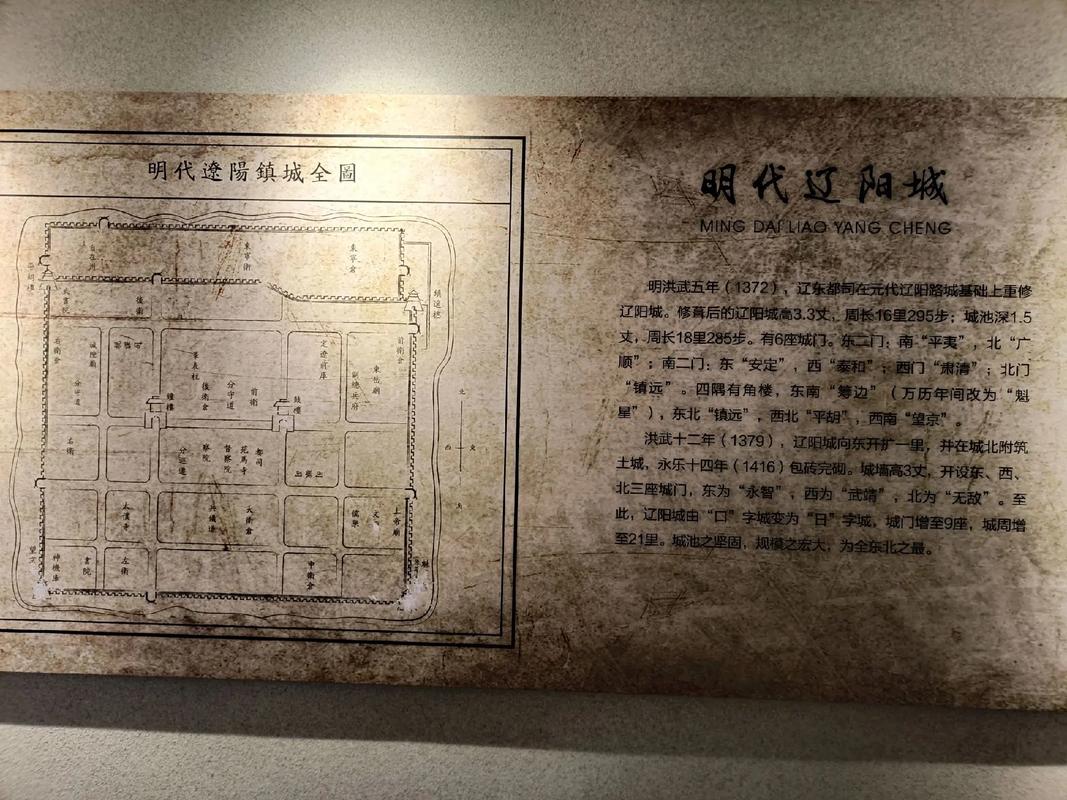 明代遼陽鎮城全圖
自在州
東寧衛
東寧倉
後衛
鎮遠樓
右衛倉
城隍廟
華表柱
定遼前庫
前衛
東嶽廟
副總兵府
分守道
後衛倉
分守道
前衛
鐘樓
鼓樓
右衛
察院
督察院
苑馬寺
都司
儒學
上帝廟
神機庫
書院
左衛
中衛倉
北
西
東
南
明代辽阳城
MING DAI LIAO YANG CHENG
明洪武五年（1372），辽东都司在元代辽阳路城基础上重修
辽阳城。修葺后的辽阳城高3.3丈，周长16里295步；城池深1.5
丈，周长18里285步。有6座城门。东二门：南“平夷”，北“广
顺”；南二门：东“安定”，西“泰和”；西门“肃清”；北门
“镇远”。四隅有角楼，东南“筹边”（万历年间改为“魁
星”），东北“镇远”，西北“平胡”，西南“望京”。
洪武十二年（1379），辽阳城向东开扩一里，并在城北附筑
土城，永乐十四年（1416）包砖完砌。城墙高3丈，开设东、西、
北三座城门，东为“永智”，西为“武靖”，北为“无敌”。至
此，辽阳城由“口”字城变为“日”字城，城门增至9座，城周增
至21里。城池之坚固，规模之宏大，为全东北之最。